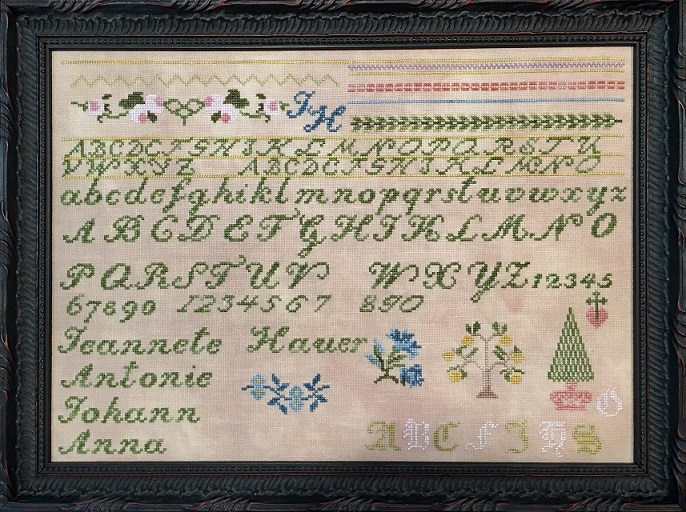 JH
ABCDEFGHJKLMNOPQRSTU
VWXYZ ABCDEFGHJKLMNO
abcdefghiklmnopqrstuvwxyz
ABCDEFGHIKLMNO
PQRSTUV WXYZ12345
67890 1234567 890
Jeannete Hauer
Antonie
Johann
Anna
O
ABC